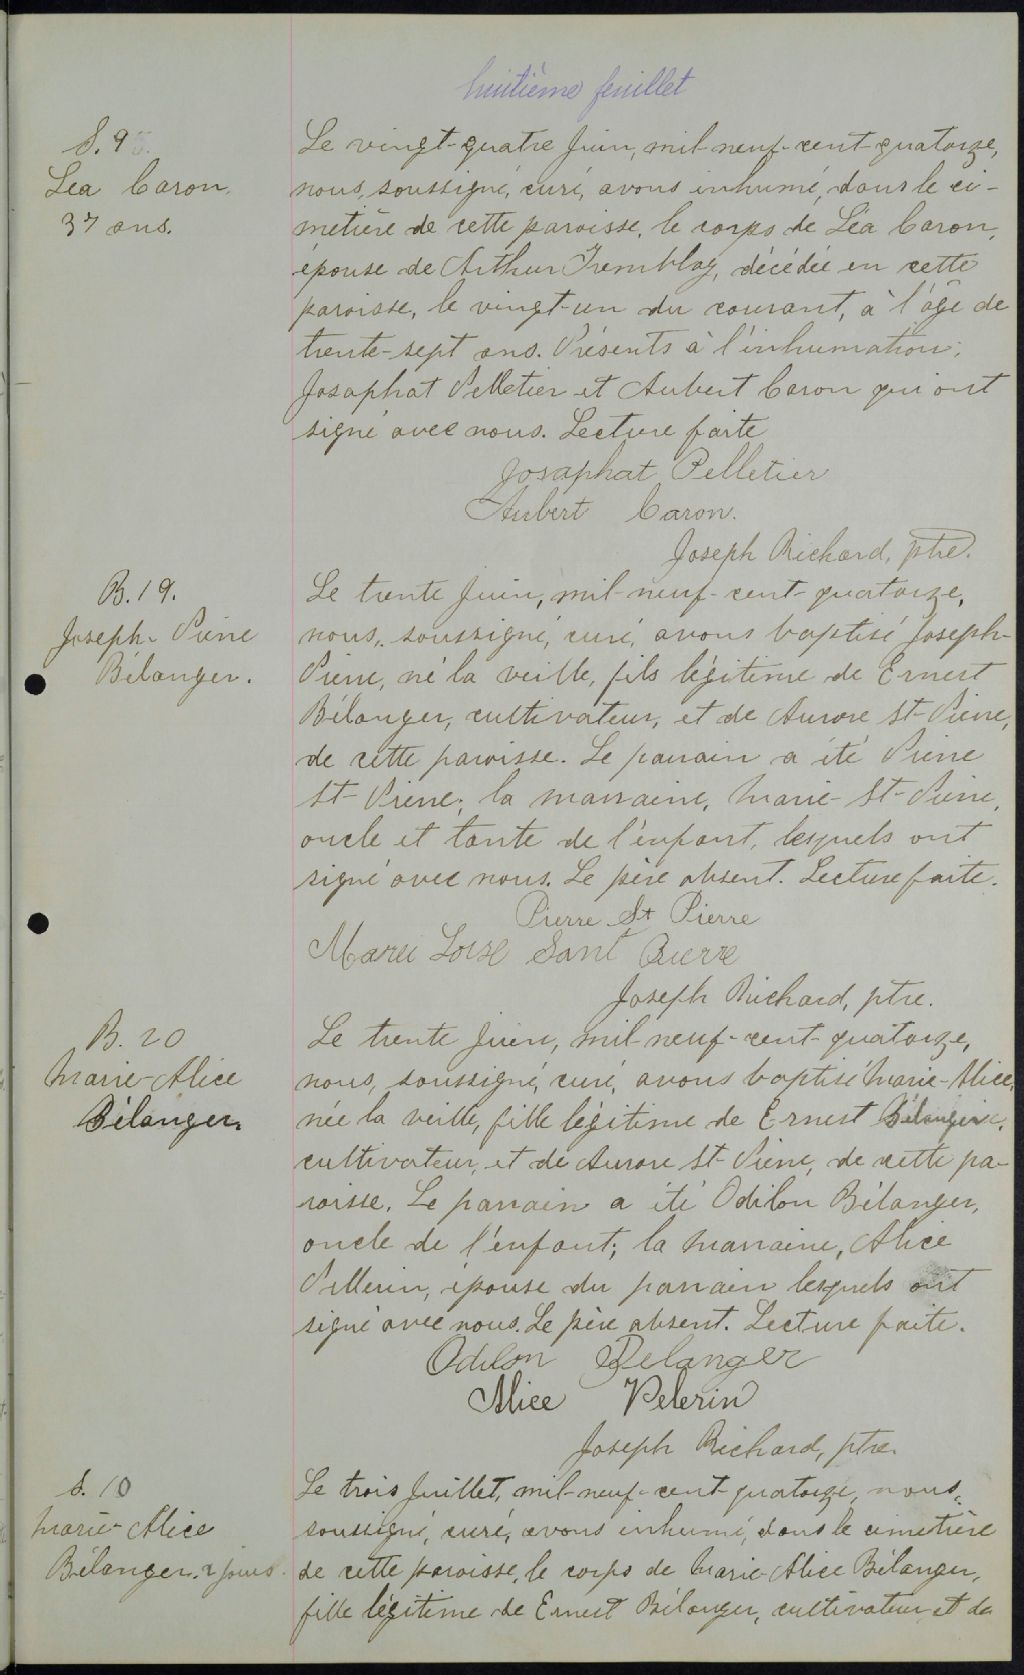 huitième feuillet
S. 9
Léa Caron
37 ans.
Le vingt-quatre Juin, mil-neuf-cent-quatorze,
nous, soussigné, curé, avons inhumé, dans le ci-
metière de cette paroisse, le corps de Léa Caron,
épouse de Arthur Tremblay, décédée en cette
paroisse, le vingt-un du courant, à l'âge de
trente-sept ans. Présents à l'inhumation:
Josaphat Pelletier et Aubert Caron qui ont
signé avec nous. Lecture faite
Josaphat Pelletier
Aubert Caron.
Joseph Richard, ptre.
B. 19.
Joseph-Pierre
Bélanger.
Le trente Juin, mil-neuf-cent-quatorze,
nous, soussigné, curé, avons baptisé Joseph-
Pierre, né la veille, fils légitime de Ernest
Bélanger, cultivateur, et de Aurore St-Pierre,
de cette paroisse. Le parrain a été Pierre
St-Pierre; la marraine, Marie-St-Pierre,
oncle et tante de l'enfant, lesquels ont
signé avec nous. Le père absent. Lecture faite.
Pierre St Pierre
Marei Loise Sant Pierre
Joseph Richard, ptre.
B. 20
Marie-Alice
Bélanger.
Le trente Juin, mil-neuf-cent-quatorze,
nous, soussigné, curé, avons baptisé Marie-Alice,
née la veille, fille légitime de Ernest Bélanger,
cultivateur, et de Aurore St-Pierre, de cette pa-
roisse. Le parrain a été Odilon Bélanger,
oncle de l'enfant; la marraine, Alice
Pellerin, épouse du parrain lesquels ont
signé avec nous. Le père absent. Lecture faite.
Odilon Belanger
Alice Pelerin
Joseph Richard, ptre.
S. 10
Marie-Alice
Bélanger. 2 jours.
Le trois Juillet, mil-neuf-cent-quatorze, nous,
soussigné, curé, avons inhumé, dans le cimetière
de cette paroisse, le corps de Marie-Alice Bélanger,
fille légitime de Ernest Bélanger, cultivateur, et de